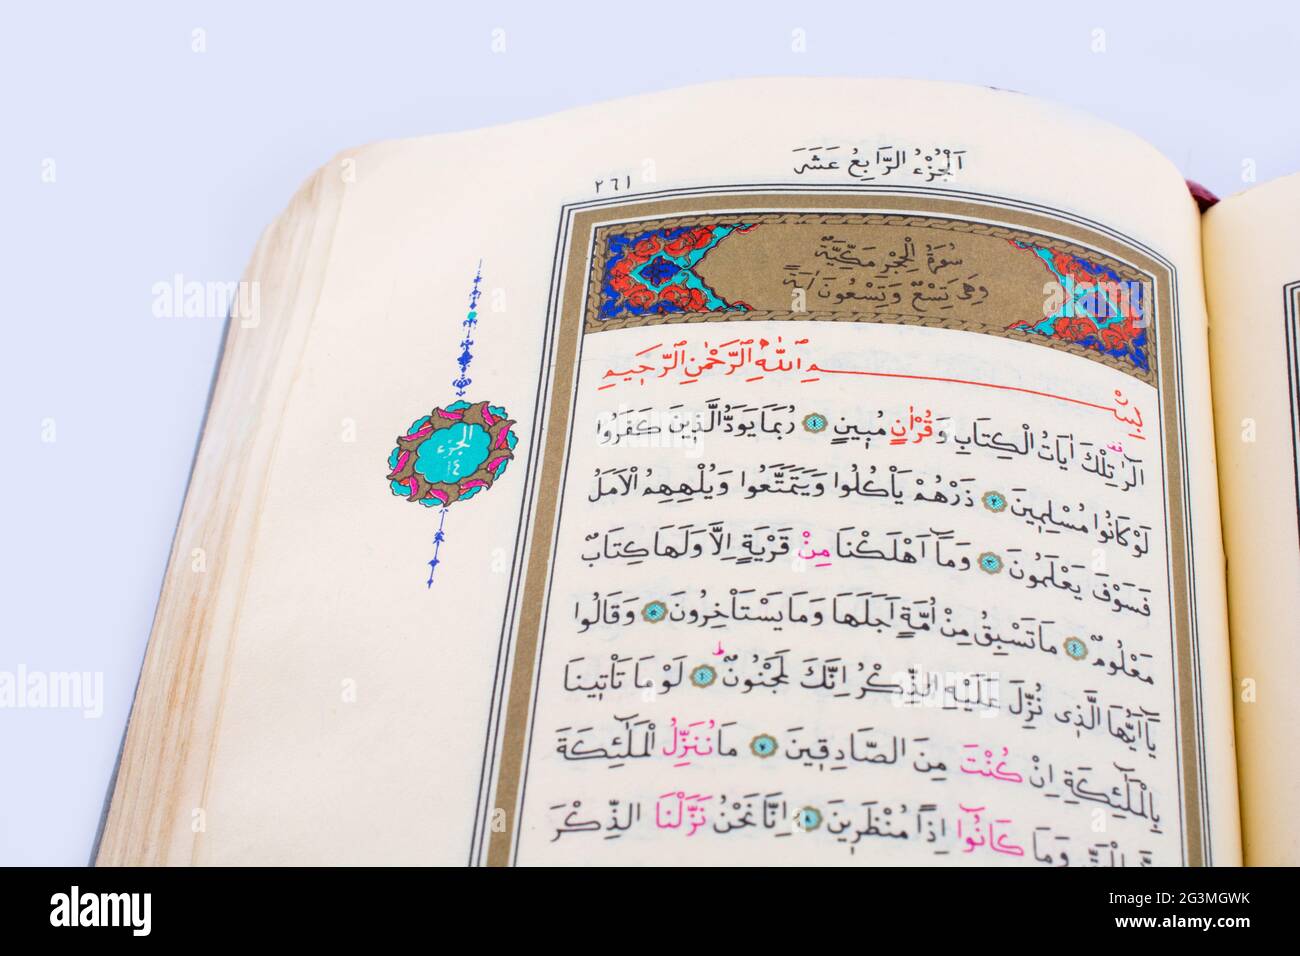 اَلْجُزْءُ الرَّابِعُ عَشَرَ
٢٦١
سُورَةُ الْحِجْرِ مَكِّيَّةٌ
وَهِىَ تِسْعٌ وَتِسْعُونَ اٰيَةً
بِسْمِ اللّٰهِ الرَّحْمٰنِ الرَّحٖيمِ
الٓرٰ قف تِلْكَ اٰيَاتُ الْكِتَابِ وَقُرْاٰنٍ مُبٖينٍ ١ رُبَمَا يَوَدُّ الَّذٖينَ كَفَرُوا
لَوْ كَانُوا مُسْلِمٖينَ ٢ ذَرْهُمْ يَأْكُلُوا وَيَتَمَتَّعُوا وَيُلْهِهِمُ الْاَمَلُ
فَسَوْفَ يَعْلَمُونَ ٣ وَمَٓا اَهْلَكْنَا مِنْ قَرْيَةٍ اِلَّا وَلَهَا كِتَابٌ
مَعْلُومٌ ٤ مَا تَسْبِقُ مِنْ اُمَّةٍ اَجَلَهَا وَمَا يَسْتَأْخِرُونَ ٥ وَقَالُوا
يَٓا اَيُّهَا الَّذٖى نُزِّلَ عَلَيْهِ الذِّكْرُ اِنَّكَ لَمَجْنُونٌ ط ٦ لَوْ مَا تَأْتٖينَا
بِالْمَلٰٓئِكَةِ اِنْ كُنْتَ مِنَ الصَّادِقٖينَ ٧ مَا نُنَزِّلُ الْمَلٰٓئِكَةَ
وَمَا كَانُٓوا اِذًا مُنْظَرٖينَ ٨ اِنَّا نَحْنُ نَزَّلْنَا الذِّكْرَ
الجزء
١٤
alamy
Image ID: 2G3MGWK
www.alamy.com